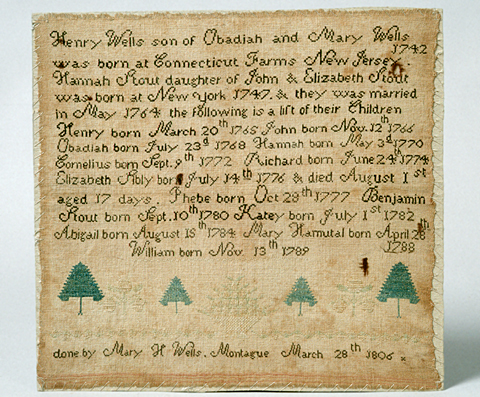 Henry Wells son of Obadiah and Mary Wells
1742
was born at Connecticut Farms New Jersey.
Hannah Stout daughter of John & Elizabeth Stout
was born at New York 1747. & they was married
in May 1764 the following is a list of their Children
Henry born March 20th 1765 John born Nov. 12th 1766
Obadiah born July 23d 1768 Hannah born May 3d 1770
Cornelius born Sept. 9th 1772 Richard born June 24th 1774
Elizabeth Sibly born July 14th 1776 & died August 1st
aged 17 days. Phebe born Oct 28th 1777 Benjamin
Stout born Sept. 10th 1780 Katey born July 1st 1782
Abigail born August 15th 1784 Mary Hamutal born April 28th
William born Nov. 13th 1789 1788
done by Mary H Wells. Montague March 28th 1806